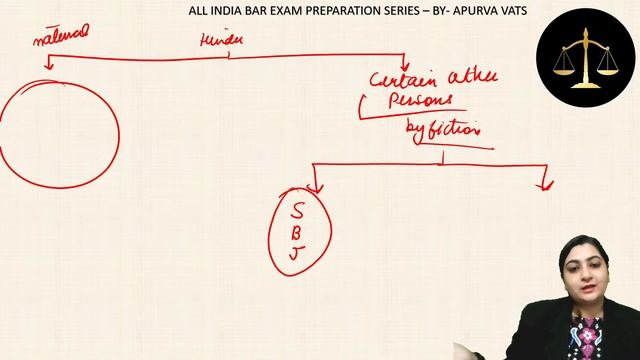 ALL INDIA BAR EXAM PREPARATION SERIES – BY- APURVA VATS
natural
Hindu
Certain other
Persons
by fiction
S
B
J